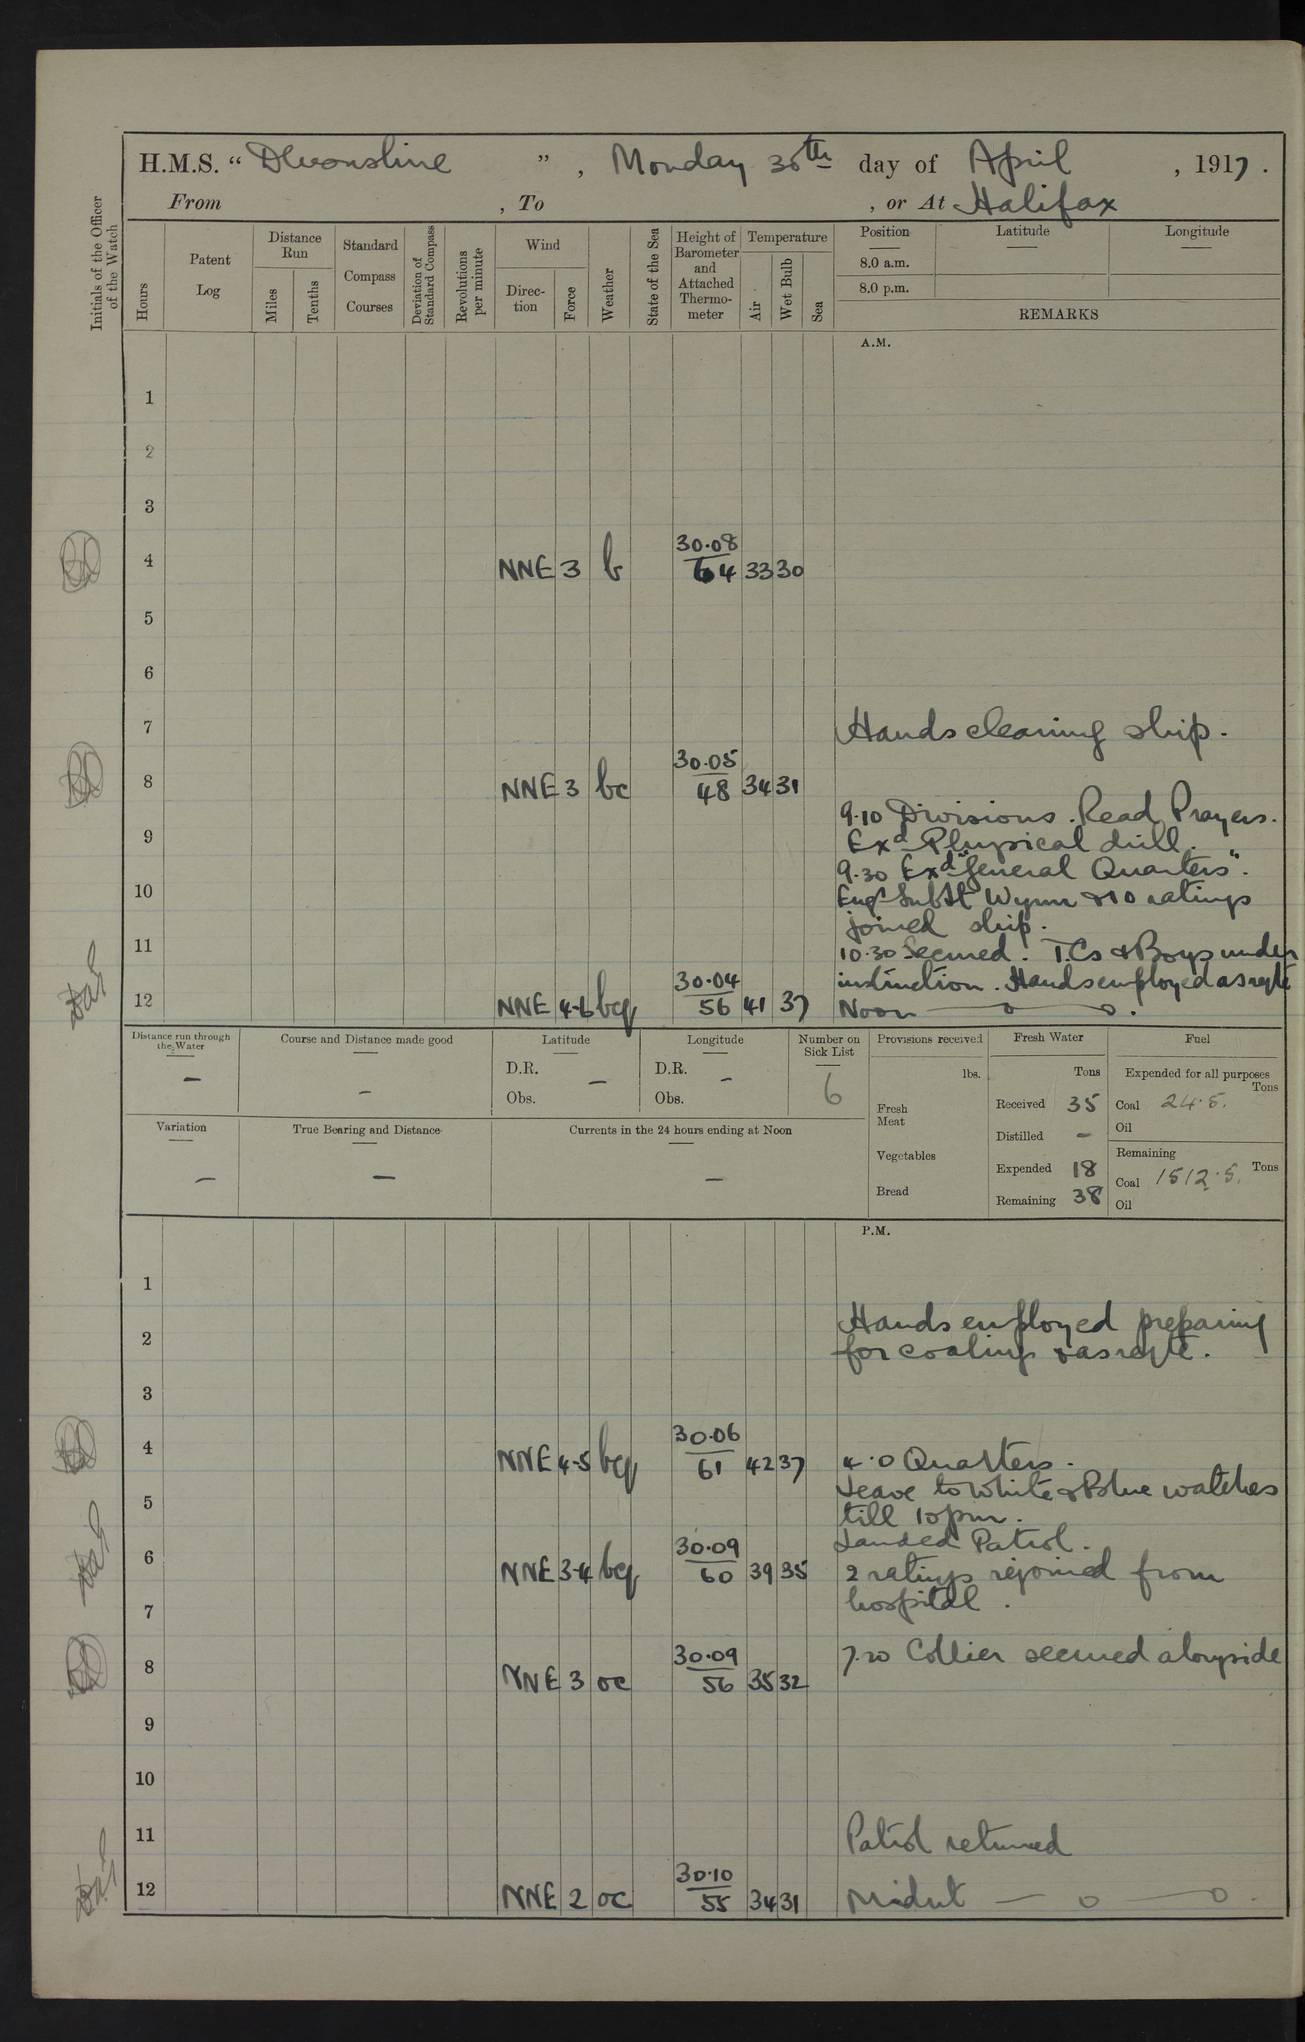 H.M.S. “ Devonshire ”, Monday 30th day of April , 1917.
From , To , or At Halifax
Initials of the Officer of the Watch
Hours
Patent Log
Distance Run
Miles
Tenths
Standard Compass Courses
Deviation of Standard Compass
Revolutions per minute
Wind
Direc-tion
Force
Weather
State of the Sea
Height of Barometer and Attached Thermo-meter
Temperature
Air
Wet Bulb
Sea
Position
8.0 a.m.
8.0 p.m.
Latitude
Longitude
REMARKS
A.M.
1
2
3
4 NNE 3 b 30.08 64 33 30
5
6
7 Hands cleaning ship.
8 NNE 3 bc 30.05 48 34 31
9.10 Divisions. Read Prayers.
9 Exd Physical drill.
9.30 Exd "General Quarters".
10 Engr Sub Lt Wynn & 10 ratings
joined ship.
11 10.30 Secured. T.Cs & Boys under
instruction. Hands employed as reqte
12 NNE 4-6 bcq 30.04 56 41 37 Noon
Distance run through the Water
—
Course and Distance made good
—
Latitude
D.R. —
Obs.
Longitude
D.R. —
Obs.
Number on Sick List
6
Provisions received
lbs.
Fresh Meat
Vegetables
Bread
Fresh Water
Tons
Received 35
Distilled —
Expended 18
Remaining 38
Fuel
Expended for all purposes
Tons
Coal 24.5.
Oil
Remaining
Coal 1512.5. Tons
Oil
Variation
—
True Bearing and Distance
—
Currents in the 24 hours ending at Noon
—
P.M.
1
Hands employed preparing
2 for coaling & as reqte.
3
4 NNE 4-5 bcq 30.06 61 42 37 4.0 Quarters.
Leave to White & Blue watches
5 till 10pm.
Landed Patrol.
6 NNE 3-4 bcq 30.09 60 39 35 2 ratings rejoined from
7 hospital.
8 NNE 3 oc 30.09 56 35 32 7.20 Collier secured alongside
9
10
11 Patrol returned
12 NNE 2 oc 30.10 55 34 31 Midnt